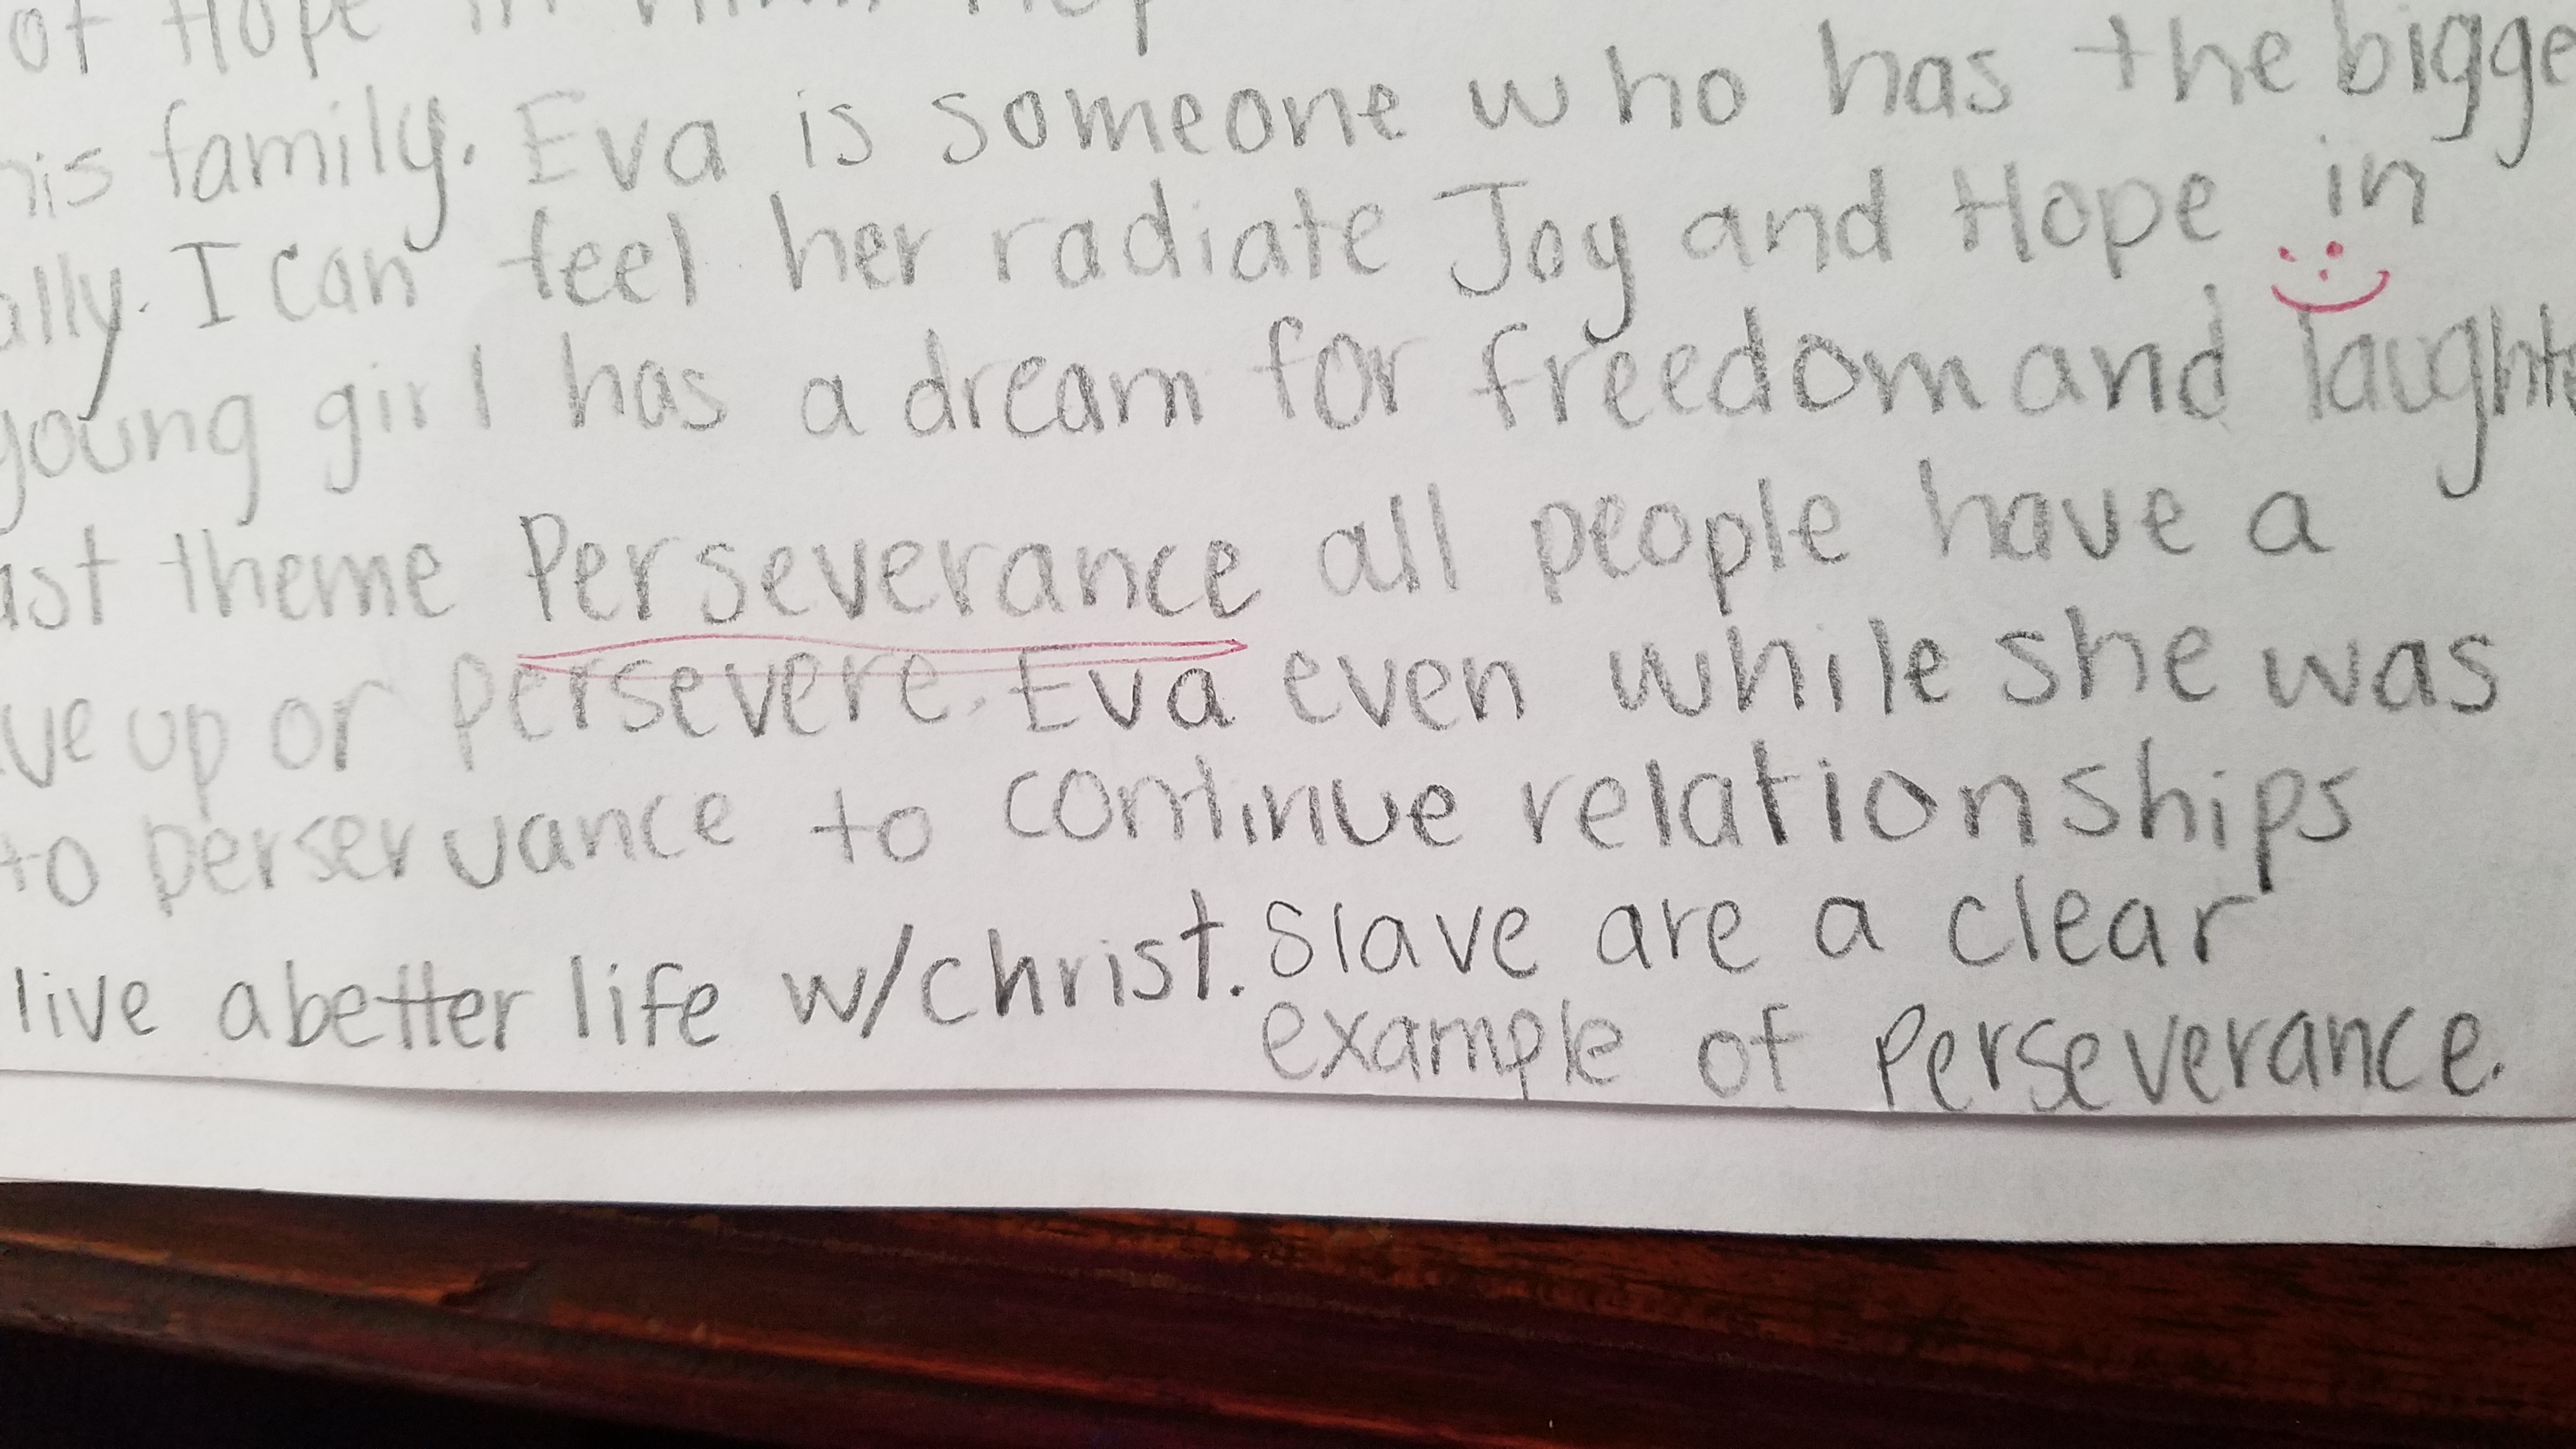 of Hope in
his family. Eva is someone who has the bigge
ally. I can feel her radiate Joy and Hope in
young girl has a dream for freedom and laught
ast theme Perseverance all people have a
ve up or persevere. Eva even while she was
to perservance to continue relationships
live a better life w/christ. Slave are a clear
example of Perseverance.